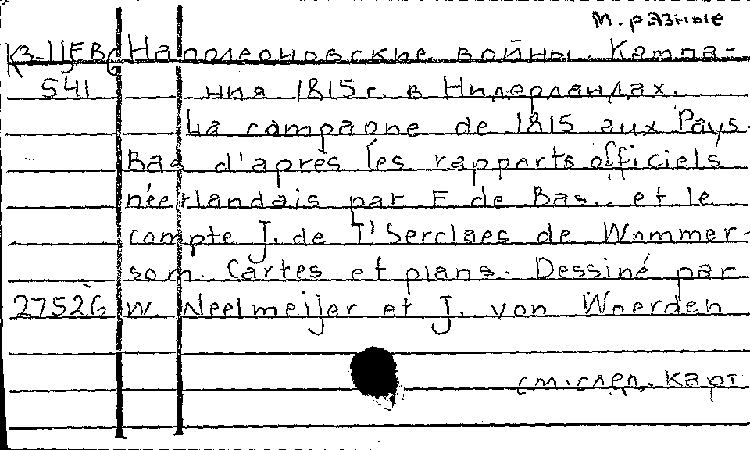 М. разные
Наполеоновские войны. Кампа-
541 ния 1815 г. в Нидерландах.
La campagne de 1815 aux Pays
Bas d'après les rapports officiels
néerlandais par F. de Bas. et le
compte J. de T'Serclaes de Wommer-
som. Cartes et plans. Dessiné par
27526 W. Neelmeijer et J. von Woerden
см. след. карт